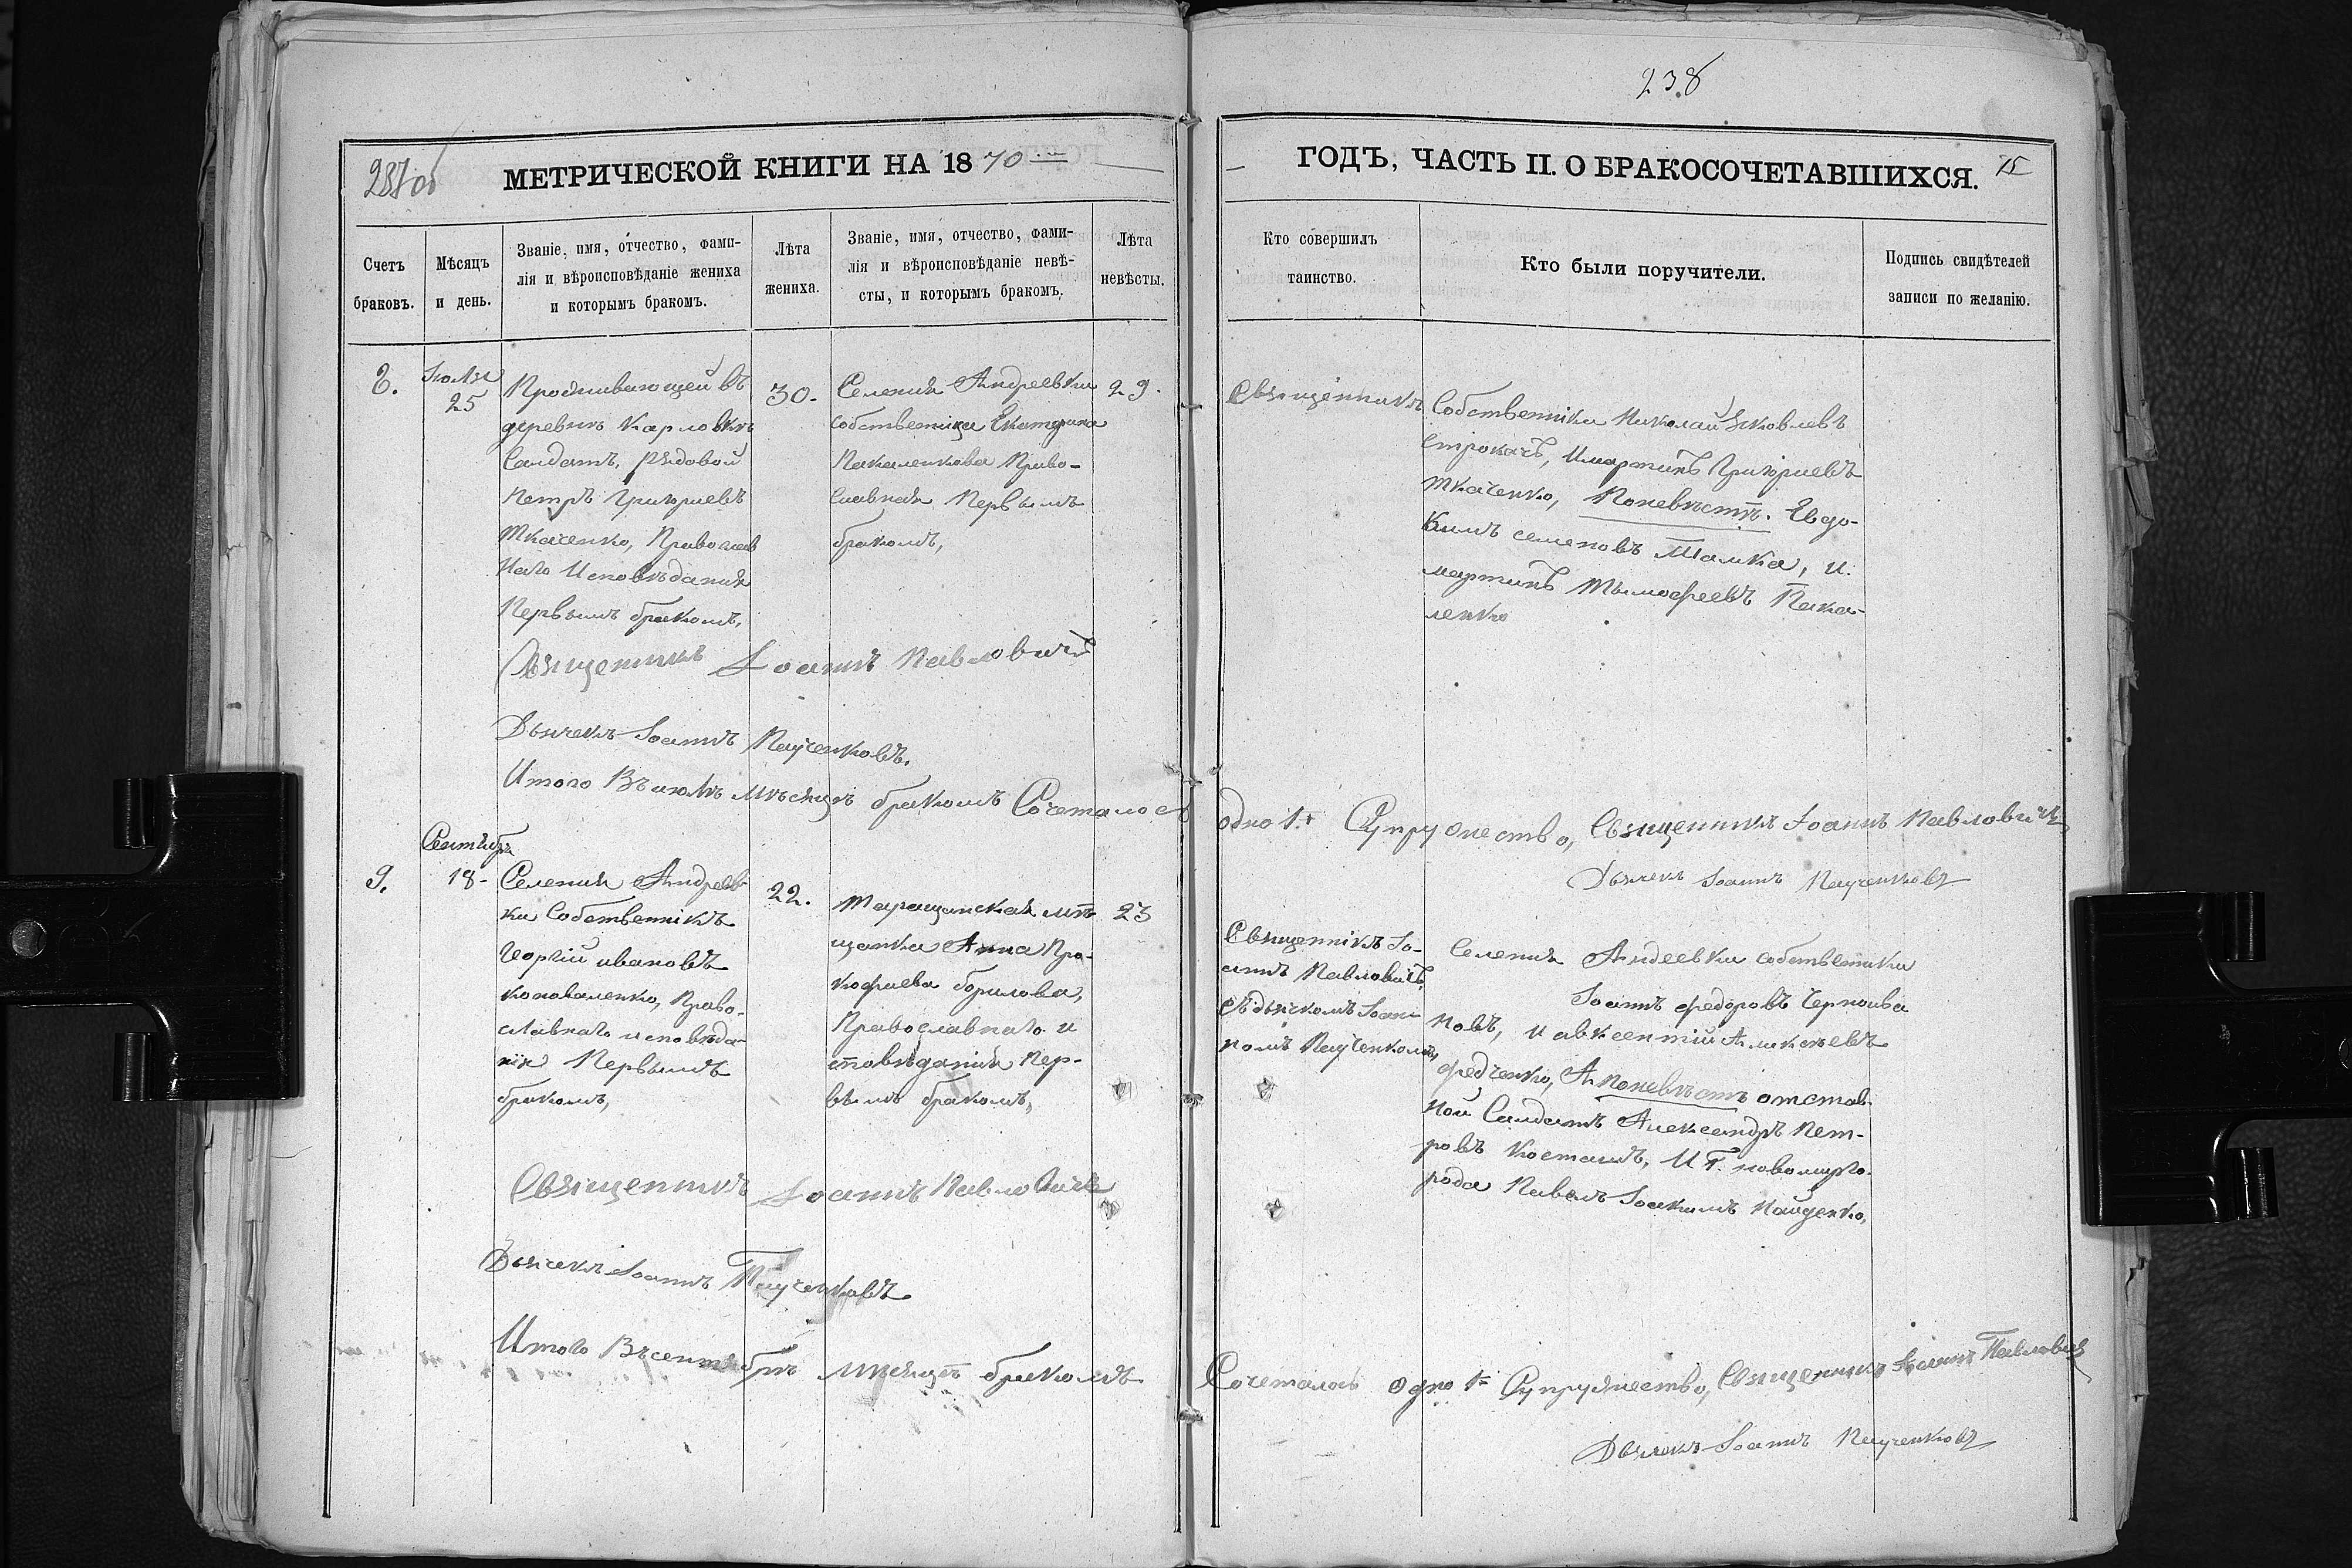 238
237об
МЕТРИЧЕСКОЙ КНИГИ НА 1870
ГОДЪ, ЧАСТЬ II. О БРАКОСОЧЕТАВШИХСЯ.
15
Счетъ
браковъ.
Мѣсяцъ
и день.
Званіе, имя, отчество, фами-
лія и вѣроисповѣданіе жениха
и которымъ бракомъ.
Лѣта
жениха.
Званіе, имя, отчество, фами-
лія и вѣроисповѣданіе невѣ-
сты, и которымъ бракомъ.
Лѣта
невѣсты.
Кто совершилъ
таинство.
Кто были поручители.
Подпись свидѣтелей
записи по желанію.
8.
Іюля
25
Проживающей въ
деревнѣ Карловкѣ
Салдатъ, рядовой
Петръ Григориевъ
Ткаченко, Православ
наго Исповѣдания
Первымъ бракомъ,
30.
Селения Андреевки
собственица Екатерина
Пакаленкова Право-
славная Первымъ
бракомъ,
29.
Священникъ
Собственники Николай Яковлевъ
Строкачъ, Имартинъ Григориевъ
Ткаченко, Поневѣстѣ. Евдо-
Кимъ семеновъ Шамка, и.
мартинъ Тымофеевъ Пака-
ленко
Священникъ Іоаннъ Павловичъ
Дьячекъ Іоаннъ Паученковъ.
Итого Въ июлѣ мѣсяцѣ бракомъ Сочеталось
одно 1. Супружество, Священникъ Іоаннъ Павловичъ
Дьячекъ Іоаннъ Паученковъ
9.
Сентября
18-
Селения Андреев-
ки Собственнікъ
Георгій ивановъ
Коноваленко, Право-
славнаго исповѣда-
нія Первымъ
бракомъ,
22.
Таращанская мѣ-
щанка Анна Про-
кофиева борилова,
Православнаго и
сповѣдания Пер-
вымъ бракомъ,
23
Священнікъ Іо-
аннъ Павловичъ,
сѣ дьячкомъ Іоан
номъ Паученкомъ,
Селения Андеевки собственики
Іоаннъ федоровъ Чернова
новъ, и авксентій Аликсѣевъ
федченко, А Поневѣстѣ отстав-
ной Салдатъ Александръ Пет-
ровъ Косташъ, И Г. новомирго-
рода Павелъ Іоакимъ Найденко,
Священникъ Іоаннъ Павловичъ
Дьячекъ Іоаннъ Паученковъ.
Итого Въсентябрѣ мѣсяцѣ бракомъ
Сочеталось Одно 1 Супружество, Священникъ Іоаннъ Павловичъ
Дьячекъ Іоаннъ Паученковъ